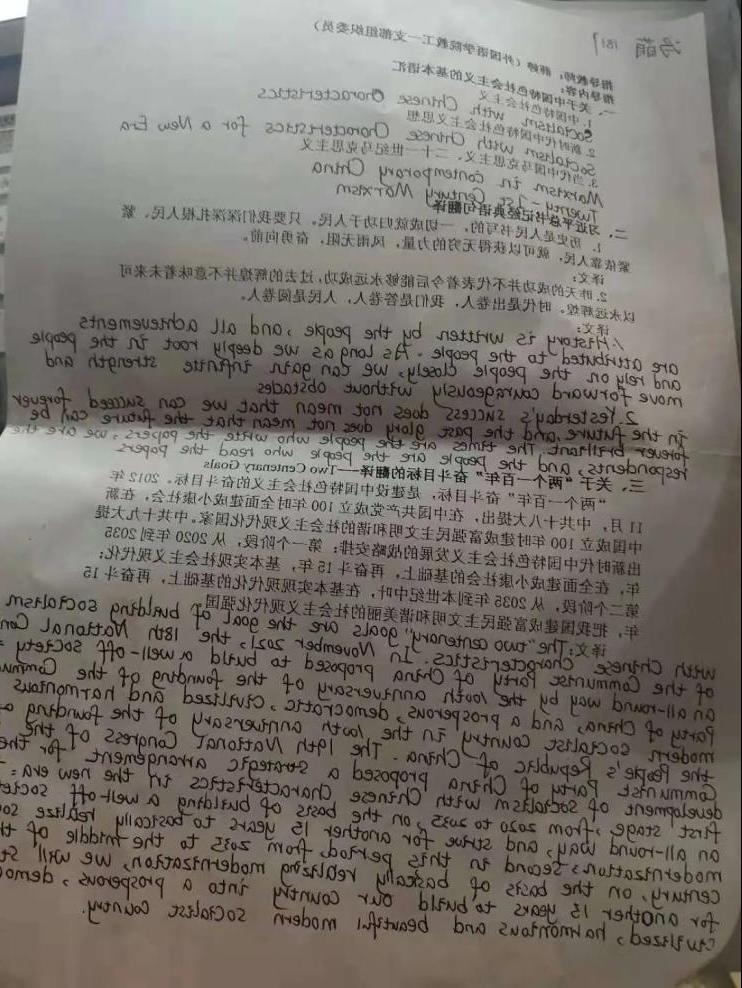 冯萌 1817
指导教师：薛婷（外国语学院教工一支部组织委员）
指导内容：
一、关于中国特色社会主义的基本语汇
1. 中国特色社会主义
Socialism with Chinese Characteristics
2. 新时代中国特色社会主义思想
Socialism with Chinese Characteristics for a New Era
3. 当代中国马克思主义、二十一世纪马克思主义
Marxism in contemporary China
Twenty-1st Century Marxism
二、习近平总书记经典语句翻译
1. 历史是人民书写的，一切成就归功于人民。只要我们深深扎根人民、紧
紧依靠人民，就可以获得无穷的力量，风雨无阻，奋勇向前。
译文：
2. 昨天的成功并不代表着今后能够永远成功，过去的辉煌并不意味着未来可
以永远辉煌。时代是出卷人，我们是答卷人，人民是阅卷人。
译文：
1. History is written by the people, and all achievements
are attributed to the people. As long as we deeply root in the people
and rely on the people closely, we can gain infinite strength and
move forward courageously without obstacles
2. Yesterday's success does not mean that we can succeed forever
in the future, and the past glory does not mean that the future can be
forever brilliant. The times are the people who write the papers, we are the
respondents, and the people are the people who read the papers
三、关于“两个一百年”奋斗目标的翻译——Two Centenary Goals
“两个一百年”奋斗目标，是建设中国特色社会主义的奋斗目标。2012 年
11 月，中共十八大提出，在中国共产党成立 100 年时全面建成小康社会，在新
中国成立 100 年时建成富强民主文明和谐的社会主义现代化国家。中共十九大提
出新时代中国特色社会主义发展的战略安排：第一个阶段，从 2020 年到 2035
年，在全面建成小康社会的基础上，再奋斗 15 年，基本实现社会主义现代化；
第二个阶段，从 2035 年到本世纪中叶，在基本实现现代化的基础上，再奋斗 15
年，把我国建成富强民主文明和谐美丽的社会主义现代化强国。
译文：The "two centenary" goals are the goal of building socialism
with Chinese Characteristics. In November 2021, the 18th National Con
of the Communist Party of China proposed to build a well-off society
an all-round way by the 100th anniversary of the founding of the Commun
Party of China, and a prosperous, democratic, civilized and harmonious
modern socialist country in the 100th anniversary of the founding o
the People's Republic of China. The 19th National Congress of the
Communist Party of China proposed a strategic arrangement for the
development of socialism with Chinese characteristics in the new era:
first stage, from 2020 to 2035, on the basis of building a well-off societ
an all-round way, and strive for another 15 years to basically realize so
modernization; Second in this period, from 2035 to the middle of th
century, on the basis of basically realizing modernization, we will st
for another 15 years to build our country into a prosperous, democ
civilized, harmonious and beautiful modern socialist country.